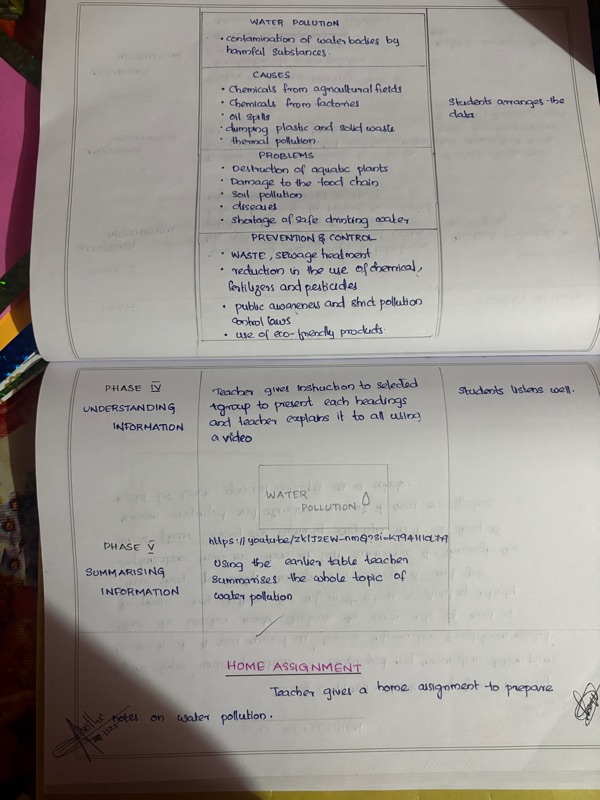 WATER POLLUTION
• contamination of water bodies by
harmful substances.
CAUSES
• Chemicals from agricultural fields
• Chemicals from factories
• oil spills
• dumping plastic and solid waste
• thermal pollution.
Students arranges the
data
PROBLEMS
• Destruction of aquatic plants
• Damage to the food chain
• Soil pollution
• diseases
• Shortage of safe drinking water
PREVENTION & CONTROL
• WASTE, sewage treatment
• reduction in the use of chemical,
fertilizers and pesticides
• public awareness and strict pollution
control laws
• use of eco-friendly products.
PHASE IV
UNDERSTANDING
INFORMATION
Teacher gives instruction to selected
group to present each headings
and teacher explains it to all using
a video
Students listens well.
WATER
POLLUTION
PHASE V
SUMMARISING
INFORMATION
Using the earlier table teacher
summarises the whole topic of
water pollution
HOME ASSIGNMENT
Teacher gives a home assignment to prepare
notes on water pollution.